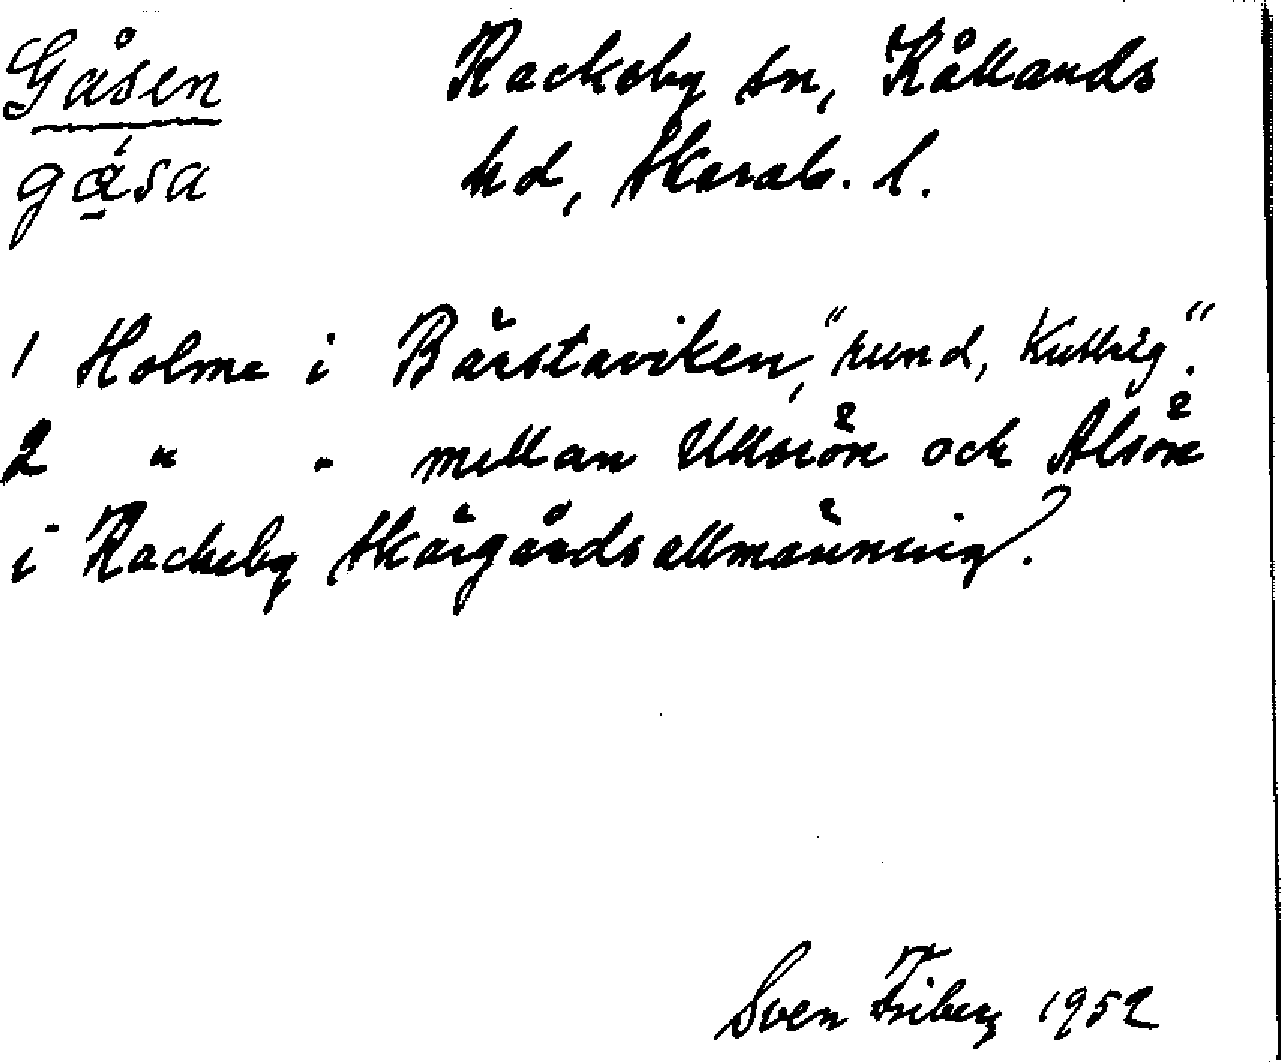 Gåsen Rackeby sn, Kållands
gåsa hd, Skarab. l.
1 Holme i Bärstaviken, "rund, kullrig".
2 " " mellan Ullersön och Alsön
i Rackeby skärgårdsallmänning.
Sven Friberg 1952